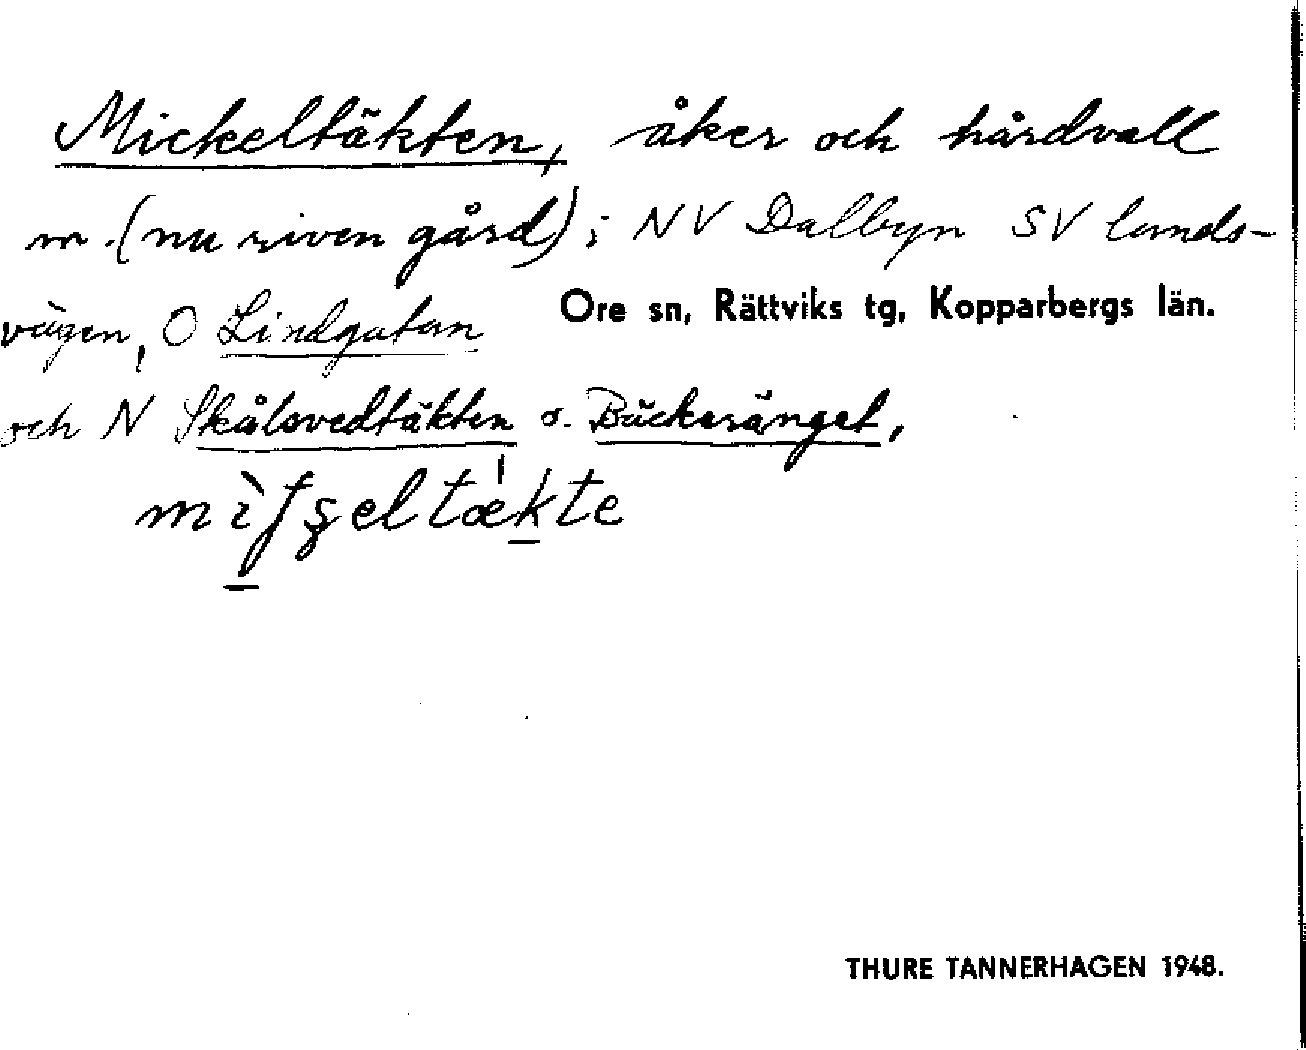 Mickeltäkten, åker och hårdvall
m. (nu riven gård); NV Dalbyn SV lands-
vägen, O Lindgatan
Ore sn, Rättviks tg, Kopparbergs län.
och N Skålsvedtäkten o. Bäckesänget,
THURE TANNERHAGEN 1948.